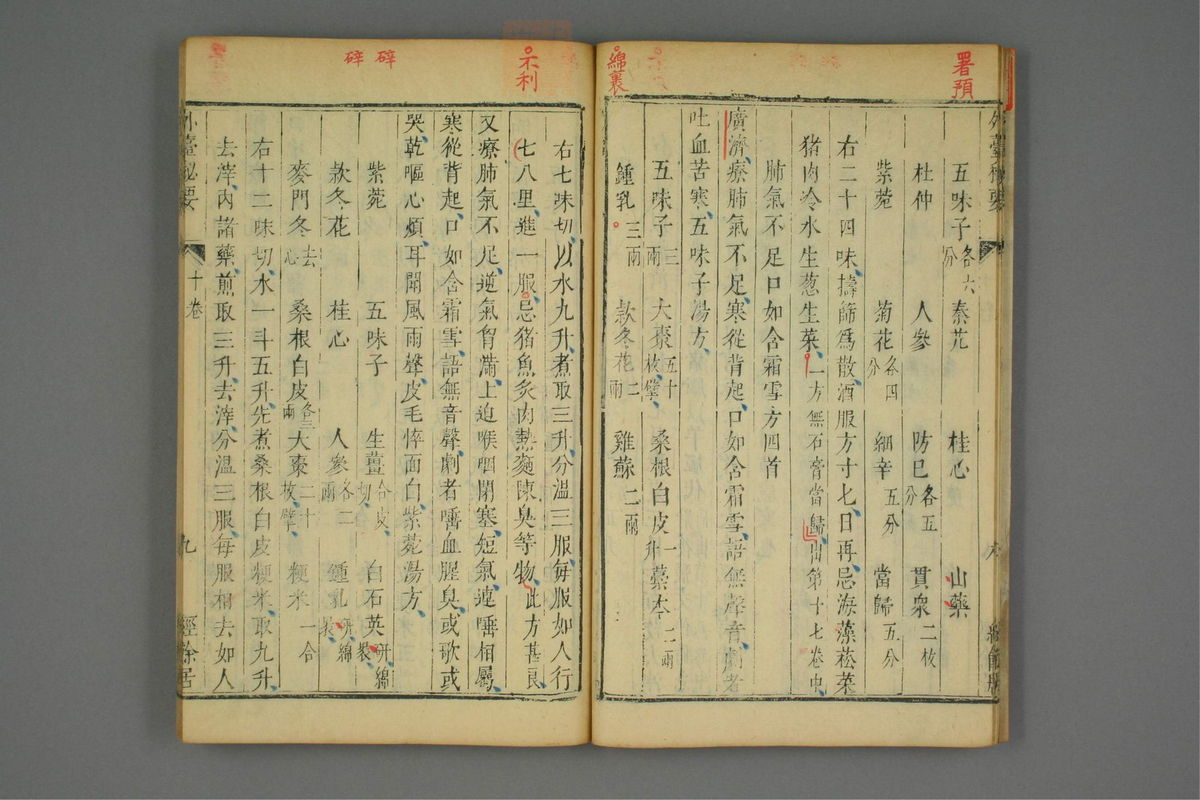 署預
綿裹
不利
碎
碎
五味子各六分 秦艽 桂心 山藥
杜仲 人參 防巳各五分 貫衆二枚
紫菀 菊花各四分 細辛五分 當歸五分
右二十四味擣篩爲散酒服方寸匕日再忌海藻菘菜
猪肉冷水生葱生菜一方無石膏當歸出第十七卷中
肺氣不足口如含霜雪方四首
廣濟療肺氣不足寒從背起口如含霜雪語無聲音劇者
吐血苦寒五味子湯方
五味子三兩 大棗五十枚擘 桑根白皮一升 藁本二兩
鍾乳三兩 款冬花二兩 雞蘇二兩
右七味切以水九升煮取三升分温三服每服如人行
七八里進一服忌猪魚炙肉熱麵陳臭等物此方甚良
又療肺氣不足逆氣胷滿上迫喉咽閉塞短氣連唾相屬
寒從背起口如含霜雪語無音聲劇者唾血腥臭或歌或
哭乾嘔心煩耳聞風雨聲皮毛悴面白紫菀湯方
紫菀 五味子 生薑合皮切 白石英研綿裹
款冬花 桂心 人參各二兩 鍾乳研綿裹
麥門冬去心 桑根白皮各三兩 大棗二十枚擘 粳米一合
右十二味切水一斗五升先煮桑根白皮粳米取九升
去滓内諸藥煎取三升去滓分温三服每服相去如人
外臺秘要 十卷 九 經餘居